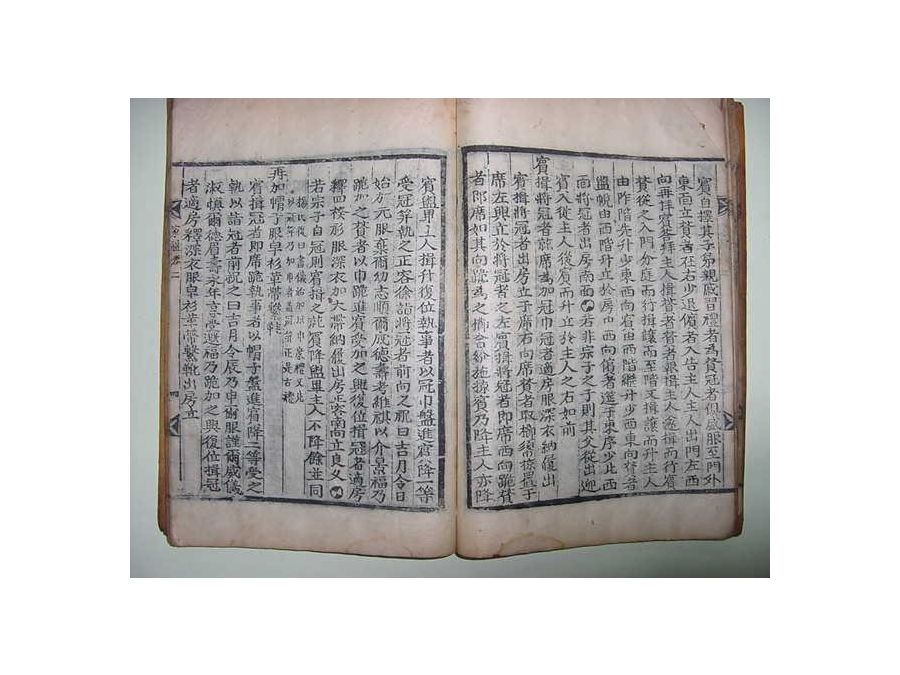 賓自擇其子弟親戚習禮者爲賛冠者俱盛服至門外
東面立賛者在右少退儐者入告主人主人出門左西
向再拜賓荅拜主人揖賛者賛者報揖主人遂揖而行賓
賛從之入門分庭而行揖讓而至階又揖讓而升主人
由阼階先升少東西向賓由西階繼升少西東向賛者
盥帨由西階升立於房中西向儐者筵于東序少北西
面將冠者出房南面○若非宗子之子則其父從出迎
賓入從主人後賓而升立於主人之右如前
賓揖將冠者就席爲加冠巾冠者適房服深衣納履出
賓揖將冠者出房立于席右向席賛者取櫛總掠置于
席左興立於將冠者之左賓揖將冠者即席西向跪賛
者即席如其向跪爲之櫛合紒施掠賓乃降主人亦降
賓盥畢主人揖升復位執事者以冠巾盤進賓降一等
受冠筓執之正容徐詣將冠者前向之祝曰吉月令日
始加元服棄爾幼志順爾成德壽考維祺以介景福乃
跪加之賛者以巾跪進賓受加之興復位揖冠者適房
釋四䙆衫服深衣加大帶納履出房正容南向立良久○
若宗子自冠則賓揖之就席賓降盥畢主人不降餘並同
楊氏復曰書儀始加以巾家禮又先
以冠筓乃加巾者蓋冠筓正是古禮
再加帽子服皁衫革帶繫鞋
賓揖冠者即席跪執事者以帽子盤進賓降二等受之
執以詣冠者前祝之曰吉月令辰乃申爾服謹爾威儀
淑愼爾德眉壽永年享受遐福乃跪加之興復位揖冠
者適房釋深衣服皁衫革帶繫鞋出房立
四